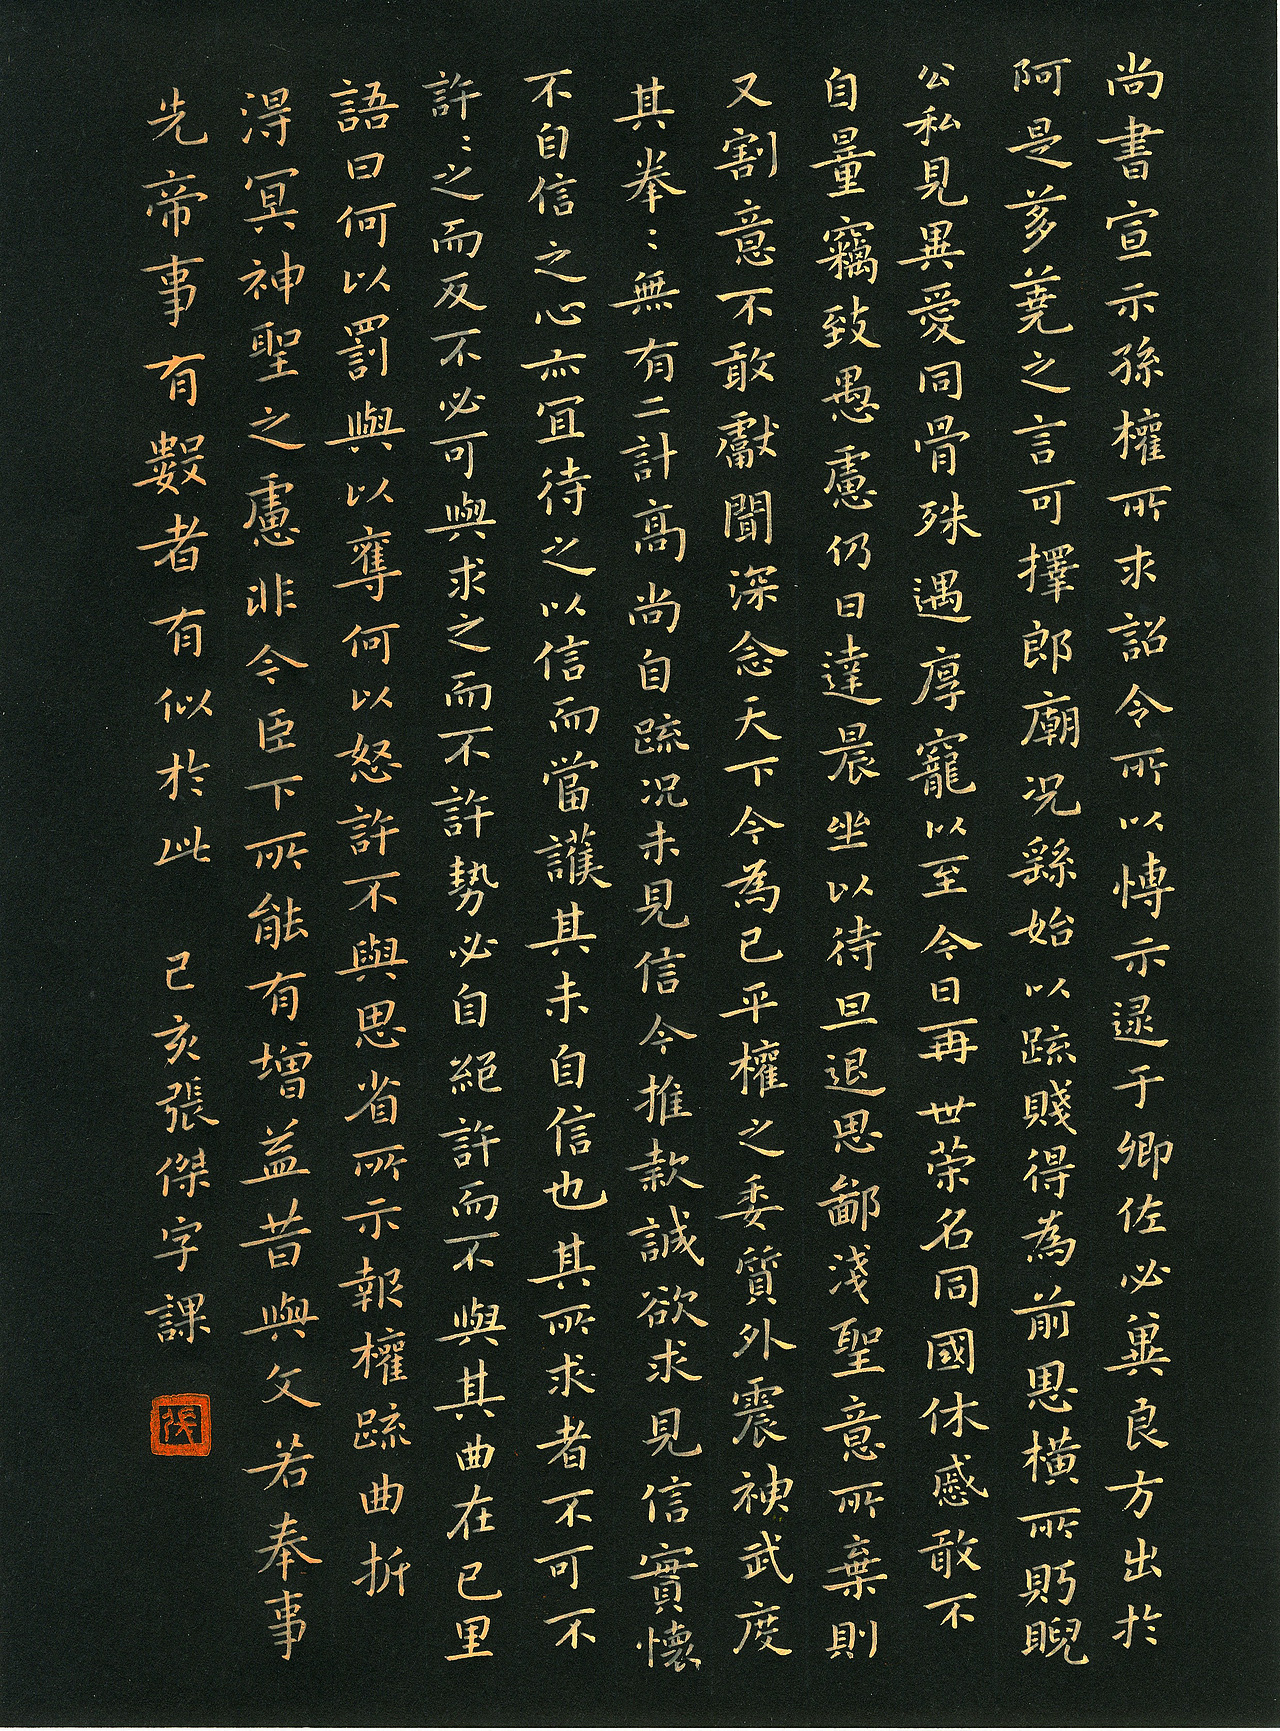 尚書宣示孫權所求詔令所以愽示逯于卿佐必兾良方出於
阿是芻蕘之言可擇郎廟况繇始以疏賤得為前思橫所眄睨
公私見異愛同骨殊遇厚寵以至今日再世荣名同國休慼敢不
自量竊致愚慮仍日達晨坐以待旦退思鄙淺聖意所棄則
又割意不敢獻聞深念天下今為已平權之委質外震神武度
其拳〻無有二計高尚自疏况未見信今推款誠欲求見信實懷
不自信之心亦宜待之以信而當護其未自信也其所求者不可不
許〻之而反不必可與求之而不許勢必自絕許而不與其曲在已里
語曰何以罰與以奪何以怒許不與思省所示報權疏曲折
得冥神聖之慮非今臣下所能有增益昔與文若奉事
先帝事有數者有似於此 己亥張傑字課